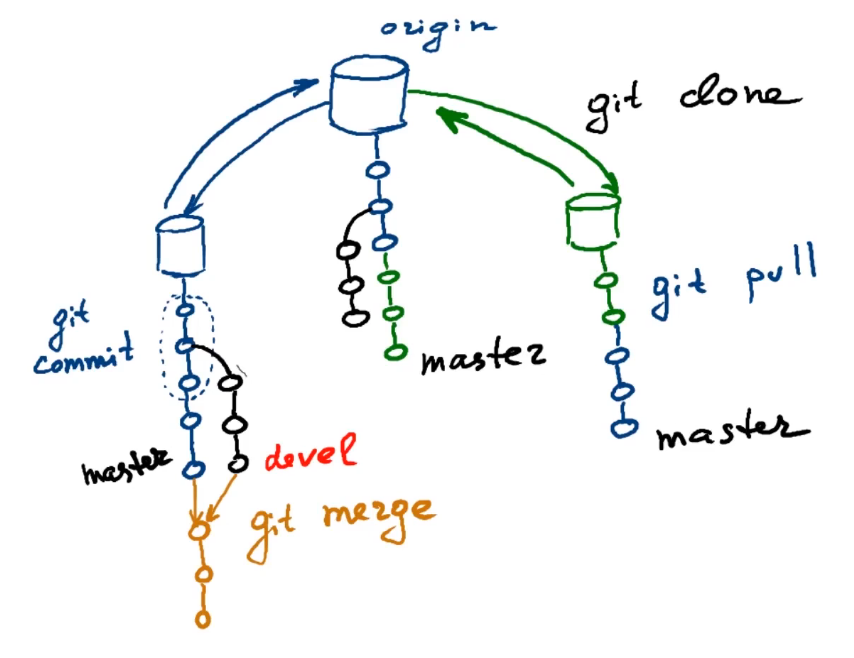 origin
git clone
git pull
git
commit
master
master
master
devel
git merge